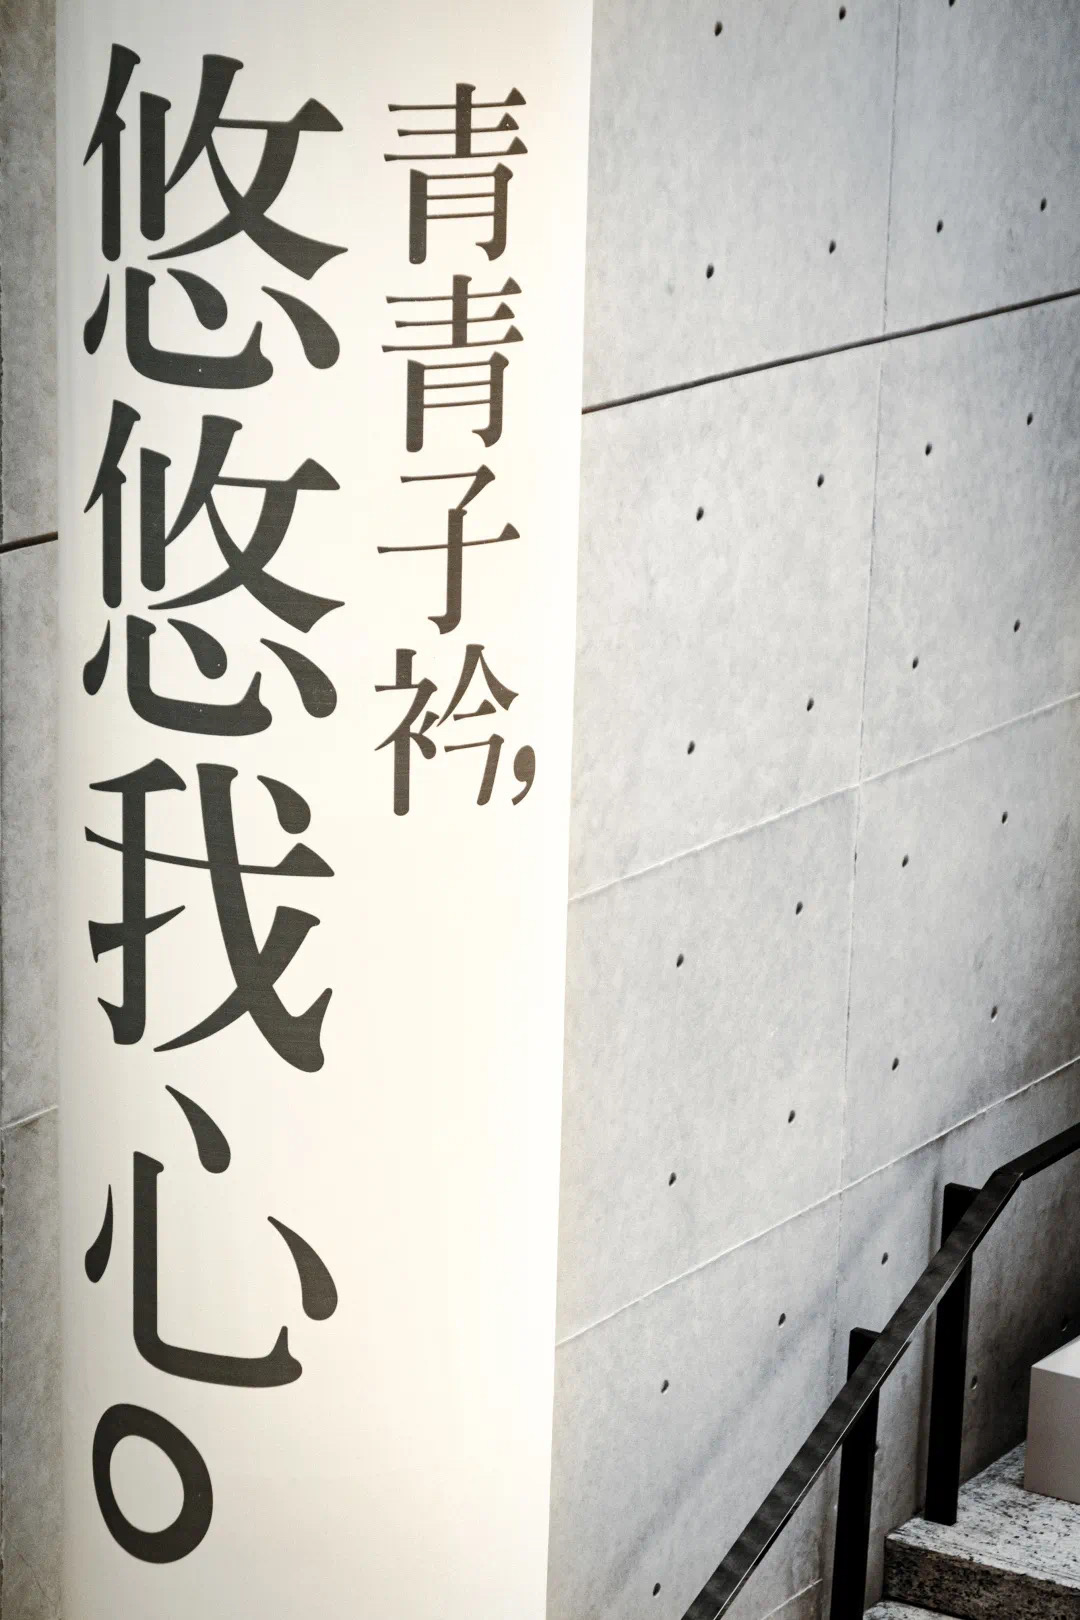 青青子衿，
悠悠我心。